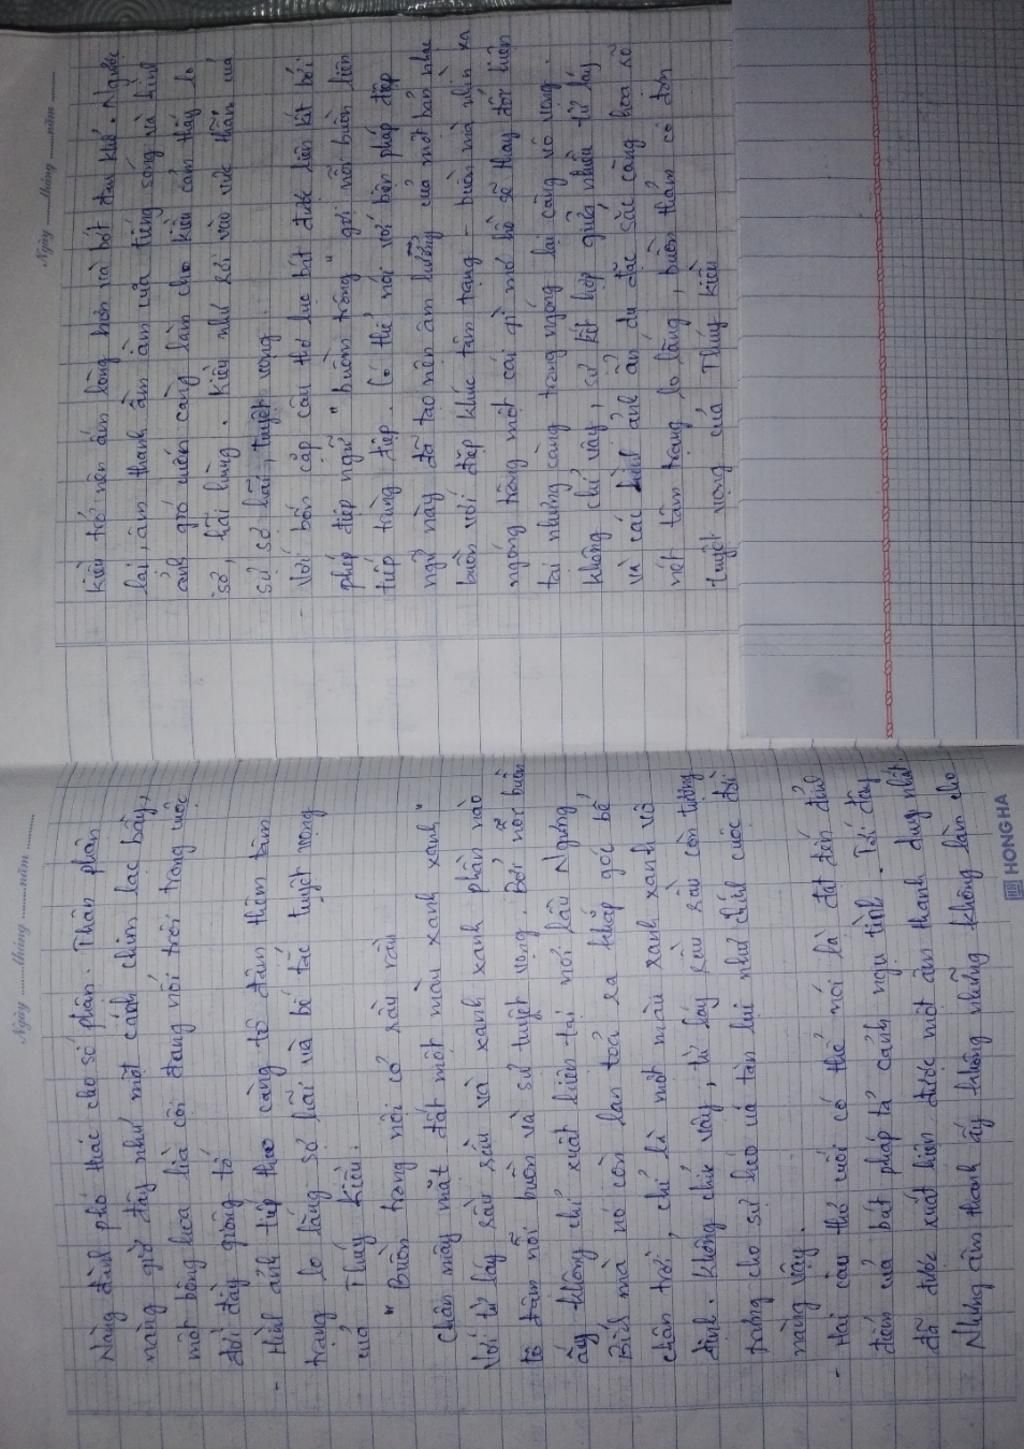 Ngày ........ tháng ........ năm ........
Nàng đành phó thác cho số phận. Thân phận
nàng giờ đây như một cánh chim lạc bầy,
một bông hoa lìa cội đang nổi trôi trong cuộc
đời đầy giông tố
- Hình ảnh tiếp theo càng tô đậm thêm tâm
trạng lo lắng sợ hãi và bế tắc tuyệt vọng
của Thúy Kiều.
" Buồn trông nội cỏ rầu rầu
Chân mây mặt đất một màu xanh xanh "
Với từ láy rầu rầu và xanh xanh phần nào
tô đậm nỗi buồn và sự tuyệt vọng. Bởi nỗi buồn
ấy không chỉ xuất hiện tại nơi lầu Ngưng
Bích mà nó còn lan toả ra khắp góc bể
chân trời, chỉ là một màu xanh xanh vô
định. Không chỉ vậy, từ láy rầu rầu còn tượng
trưng cho sự héo úa tàn lụi như chính cuộc đời
nàng vậy.
- Hai câu thơ cuối có thể nói là đạt đến đỉnh
điểm của bút pháp tả cảnh ngụ tình. Tới đây
đã được xuất hiện được một âm thanh duy nhất
Nhưng âm thanh ấy không những không làm cho
HONG HA
Ngày ........ tháng ........ năm ........
Kiều trở nên ấm lòng hơn và bớt đau khổ. Ngược
lại, âm thanh ầm ầm của tiếng sóng và hình
ảnh gió cuốn càng làm cho Kiều cảm thấy lo
sợ, hãi hùng. Kiều như rơi vào vực thẳm của
sự sợ hãi, tuyệt vọng.
- Với bốn cặp câu thơ lục bát được liên kết bởi
phép điệp ngữ " buồn trông " gợi nỗi buồn liên
tiếp trùng điệp. Có thể nói với biện pháp điệp
ngữ này đã tạo nên âm hưởng của một bản nhạc
buồn với điệp khúc tâm trạng - buồn mà nhìn xa
ngóng trông một cái gì mơ hồ sẽ thay đổi hiện
tại nhưng càng trông ngóng lại càng vô vọng.
Không chỉ vậy, sự kết hợp giữa nhiều từ láy
và các hình ảnh ẩn dụ đặc sắc càng họa rõ
nét tâm trạng lo lắng, buồn thảm cô đơn
tuyệt vọng của Thúy Kiều